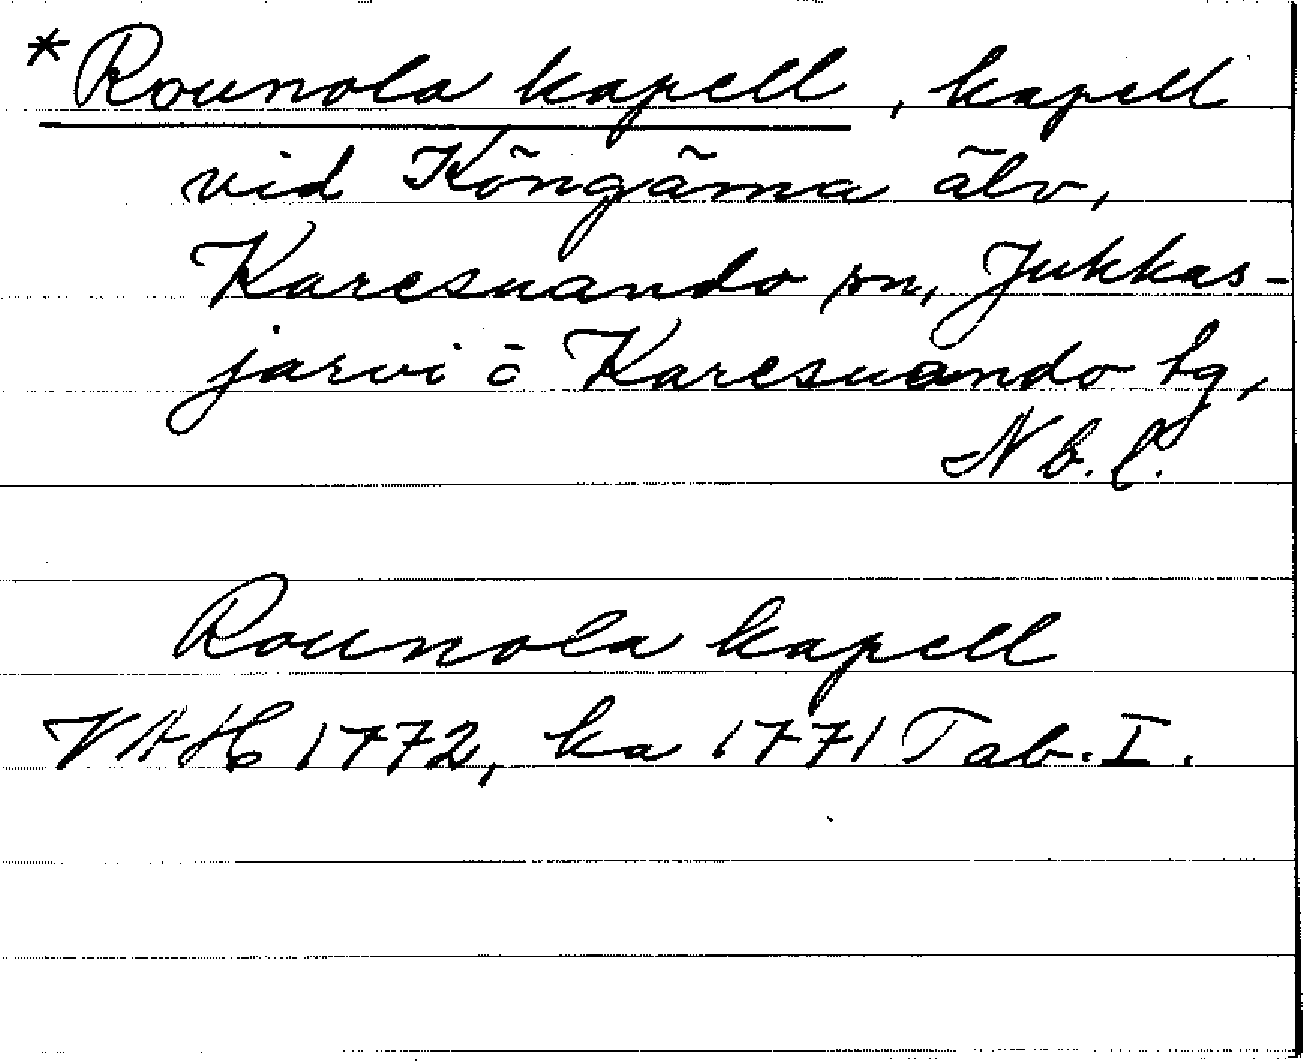 *Rounola kapell, kapell
vid Köngäma älv,
Karesuando sn, Jukkas-
jarvi o Karesuando tg,
Nb. l.
Rounola kapell
VAH 1772, ka 1771 Tab. I.